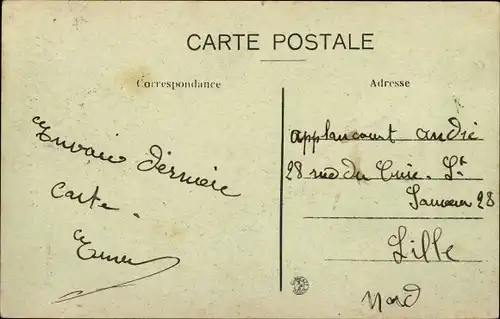 CARTE POSTALE
Correspondance
Adresse
Envoie dernière
carte -
applancourt andré
28 rue du Curé - St
28
Lille
Nord